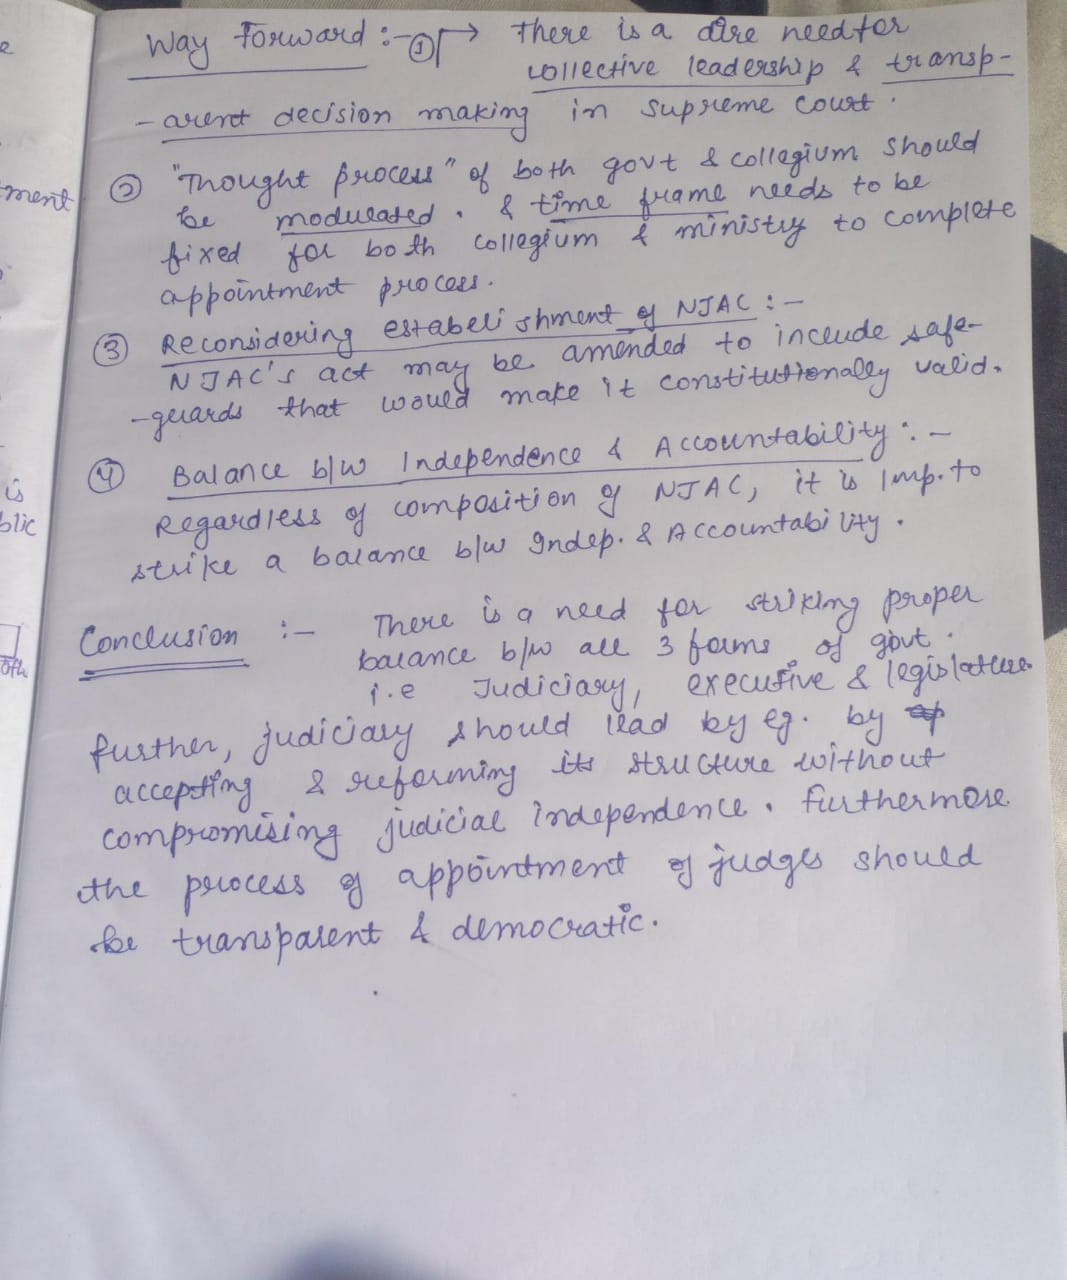 Way Forward :- ① → There is a dire need for
collective leadership & transp-
-arent decision making in supreme court.
② "Thought process" of both govt & collegium should
be modulated. & time frame needs to be
fixed for both collegium & ministry to complete
appointment process.
③ Reconsidering estabelishment of NJAC :-
NJAC's act may be amended to include safe-
-guards that would make it constitutionally valid.
④ Balance b/w Independence & Accountability :-
Regardless of composition of NJAC, it is Imp. to
strike a balance b/w Indep. & Accountability.
Conclusion :- There is a need for striking proper
balance b/w all 3 forms of govt.
i.e Judiciary, executive & legislature
further, judiciary should lead by eg. by
accepting & reforming its structure without
compromising judicial independence. furthermore
the process of appointment of judges should
be transparent & democratic.
e
ment
is
blic
oth